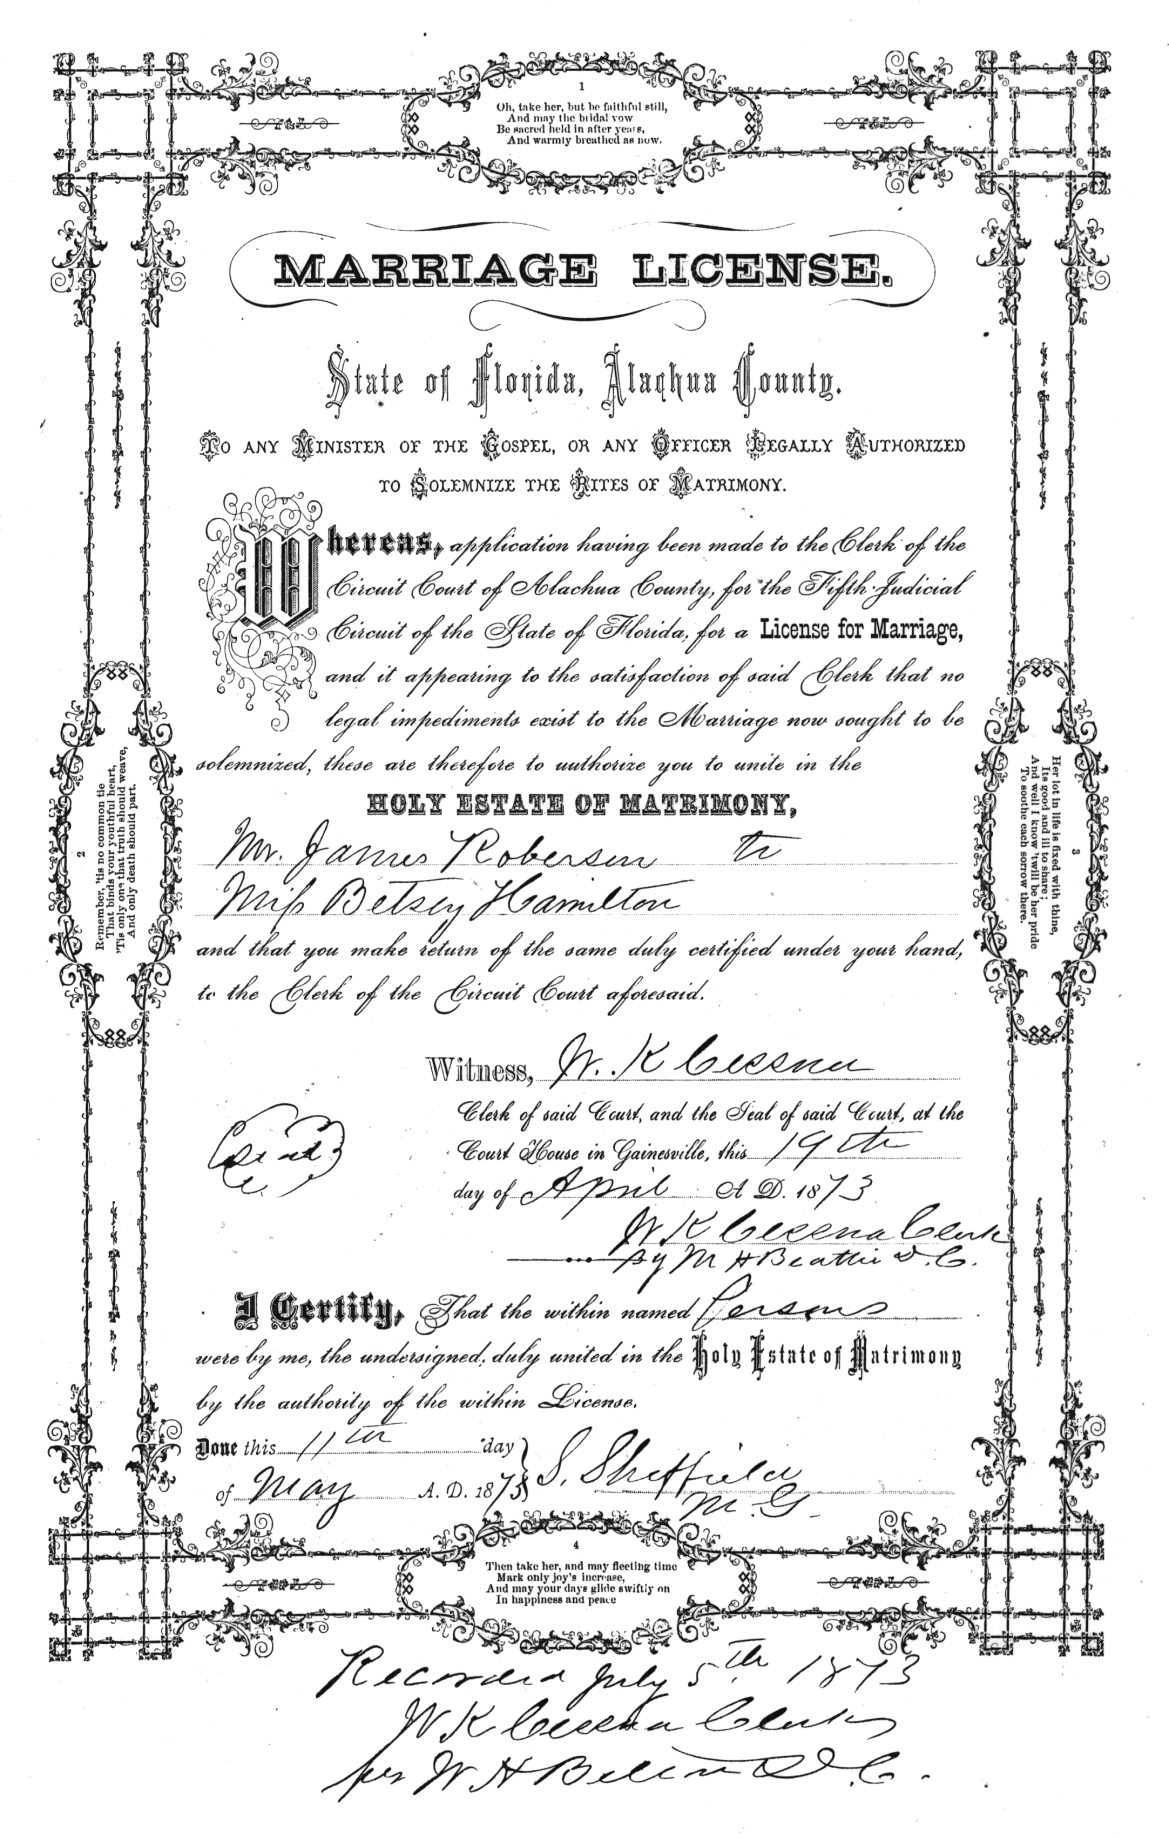 1
Oh, take her, but be faithful still,
And may the bridal vow
Be sacred held in after years,
And warmly breathed as now.
MARRIAGE LICENSE.
State of Florida, Alachua County.
TO ANY MINISTER OF THE GOSPEL, OR ANY OFFICER LEGALLY AUTHORIZED
TO SOLEMNIZE THE RITES OF MATRIMONY.
Whereas, application having been made to the Clerk of the
Circuit Court of Alachua County, for the Fifth Judicial
Circuit of the State of Florida, for a License for Marriage,
and it appearing to the satisfaction of said Clerk that no
legal impediments exist to the Marriage now sought to be
solemnized, these are therefore to authorize you to unite in the
HOLY ESTATE OF MATRIMONY,
Mr. James Roberson to
Miss Betsey Hamilton
and that you make return of the same duly certified under your hand,
to the Clerk of the Circuit Court aforesaid.
2
Remember, 'tis no common tie
That binds your youthful heart,
'Tis only one that truth should weave,
And only death should part.
3
Her lot in life is fixed with thine,
Its good and ill to share;
And well I know 'twill be her pride
To soothe each sorrow there.
Witness, W. K Cessna
Clerk of said Court, and the Seal of said Court, at the
Court House in Gainesville, this 19th
day of April A D. 1873
Seal
W K Cessna Clerk
By M H Beattie D. C.
I Certify, That the within named Persons
were by me, the undersigned, duly united in the Holy Estate of Matrimony
by the authority of the within License.
Done this 11th day
of May A. D. 1873
S. Sheffield
M. G.
4
Then take her, and may fleeting time
Mark only joy's increase,
And may your days glide swiftly on
In happiness and peace
Recorded July 5th 1873
W K Cessna Clerk
per W H D. C.